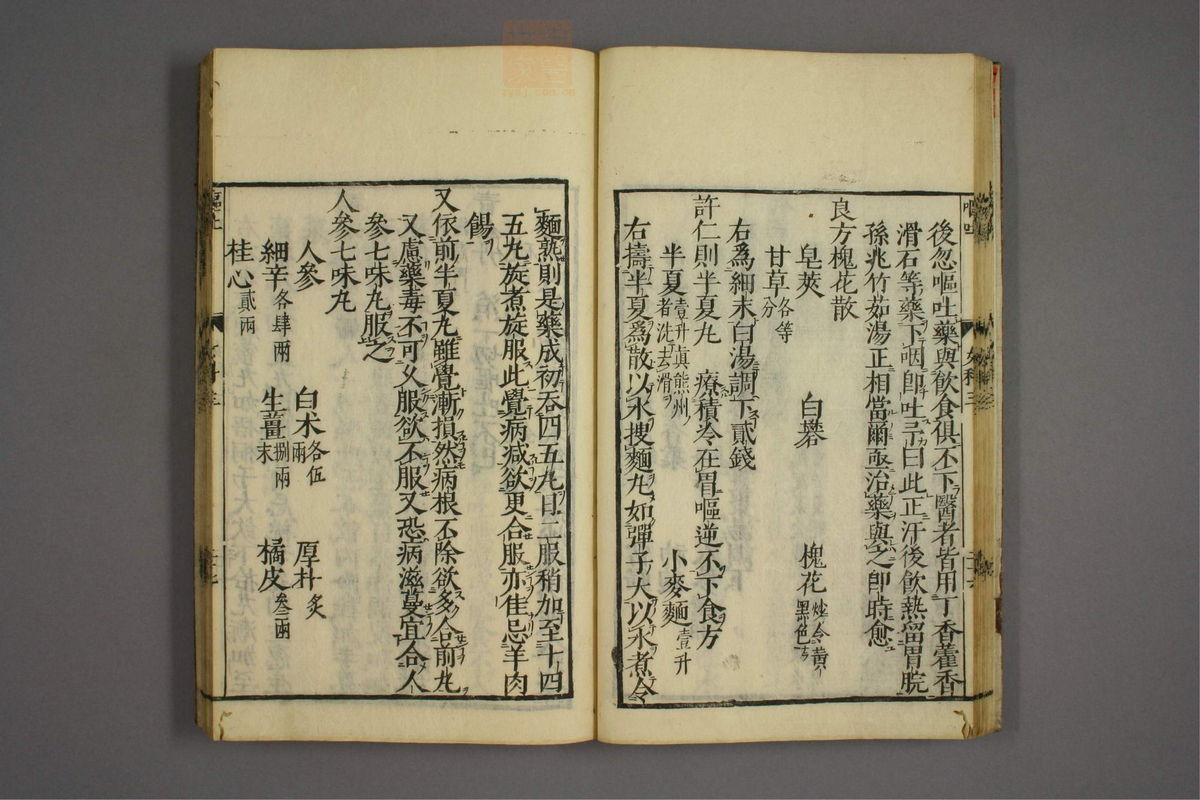 後忽嘔吐藥與飲食俱不下醫者皆用丁香藿香
滑石等藥下咽即吐予曰此正汗後飲熱留胃脘
孫兆竹茹湯正相當爾亟治藥與之即時愈
良方槐花散
皂莢 白礬 槐花炒令黃黑色
甘草各等分
右爲細末白湯調下貳錢
許仁則半夏丸 療積冷在胃嘔逆不下食方
半夏壹升眞熊州者洗去滑 小麥麵壹升
右擣半夏爲散以水搜麵丸如彈子大以水煮令
麵熟則是藥成初吞四五丸日二服稍加至十四
五丸旋煮旋服此覺病減欲更合服亦佳忌羊肉
餳
又依前半夏丸雖覺漸損然病根不除欲多合前丸
又慮藥毒不可久服欲不服又恐病滋蔓宜合人
參七味丸服之
人參七味丸
人參 白术各伍兩 厚朴炙
細辛各肆兩 生薑捌兩末 橘皮叁兩
桂心貳兩